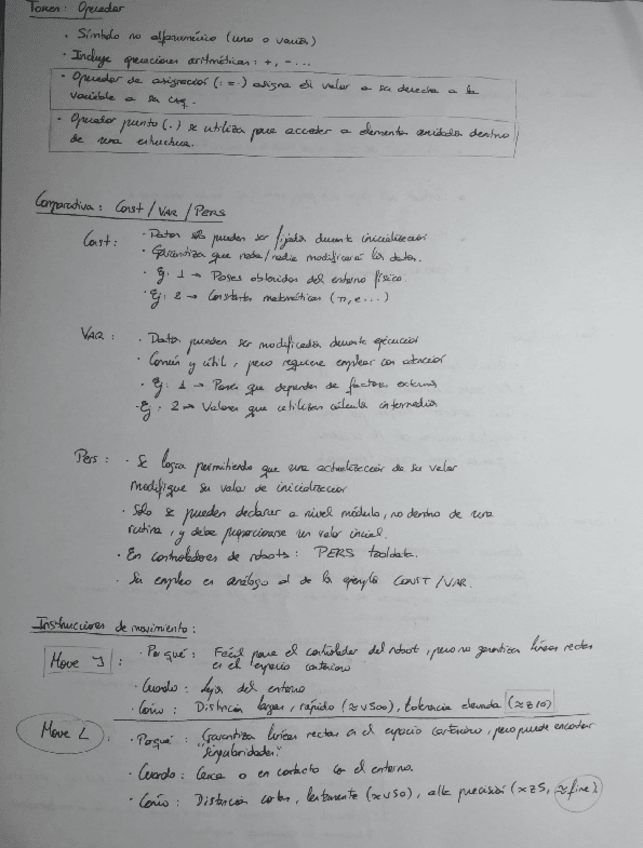 Token: Operador
· Símbolo no alfanumérico (uno o varios)
· Incluye operaciones aritméticas: +, - ...
· Operador de asignación (:=) asigna el valor a su derecha a la
variable a su izq.
· Operador punto (.) se utiliza para acceder a elementos anidados dentro
de una estructura.
Comparativa: Const / VAR / PERS
Const: · Datos sólo pueden ser fijados durante inicialización
· Garantiza que nada/nadie modificará los datos.
· Ej. 1 → Poses obtenidas del entorno físico.
· Ej. 2 → Constantes matemáticas (π, e...)
VAR: · Datos pueden ser modificados durante ejecución
· Común y útil, pero requiere emplear con atención
· Ej. 1 → Poses que dependen de factores externos
· Ej. 2 → Valores que utilizan cálculos intermedios
Pers: · Se logra permitiendo que una actualización de su valor
modifique su valor de inicialización
· Sólo se pueden declarar a nivel módulo, no dentro de una
rutina, y debe proporcionarse un valor inicial.
· En controladores de robots: PERS tooldata.
· Su empleo es análogo al de los ejemplos CONST/VAR.
Instrucciones de movimiento:
Move J: · Por qué: Fácil para el controlador del robot, pero no garantiza líneas rectas
en el espacio cartesiano
· Cuando: lejos del entorno
· Cómo: Distancias largas, rápido (≈v500), tolerancia elevada (≈z10)
Move L: · Por qué: Garantiza líneas rectas en el espacio cartesiano, pero puede encontrar
"singularidades".
· Cuando: Cerca o en contacto con el entorno.
· Cómo: Distancias cortas, lentamente (≈v50), alta precisión (≈z5, ≈fine)